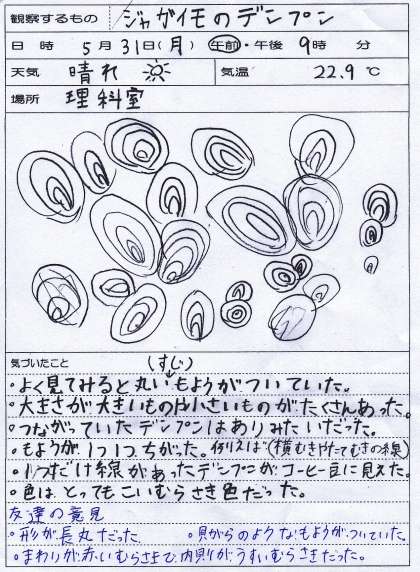 観察するもの ジャガイモのデンプン
日時 5月31日(月) 午前・午後 9時 分
天気 晴れ 気温 22.9℃
場所 理科室
気づいたこと (すじ)
・よく見てみると丸いもようがついていた。
・大きさが大きいものや小さいものがたくさんあった。
・つながっていたデンプンはありみたいだった。
・もようが1つ1つちがった。例えば(横むきやたてむきの線)
・1つだけ線があったデンプンがコーヒー豆に見えた。
・色はとってもこいむらさき色だった。
友達の意見
・形が長丸だった ・貝がらのようなもようがついていた。
・まわりが赤いむらさきで内側がうすいむらさきだった。